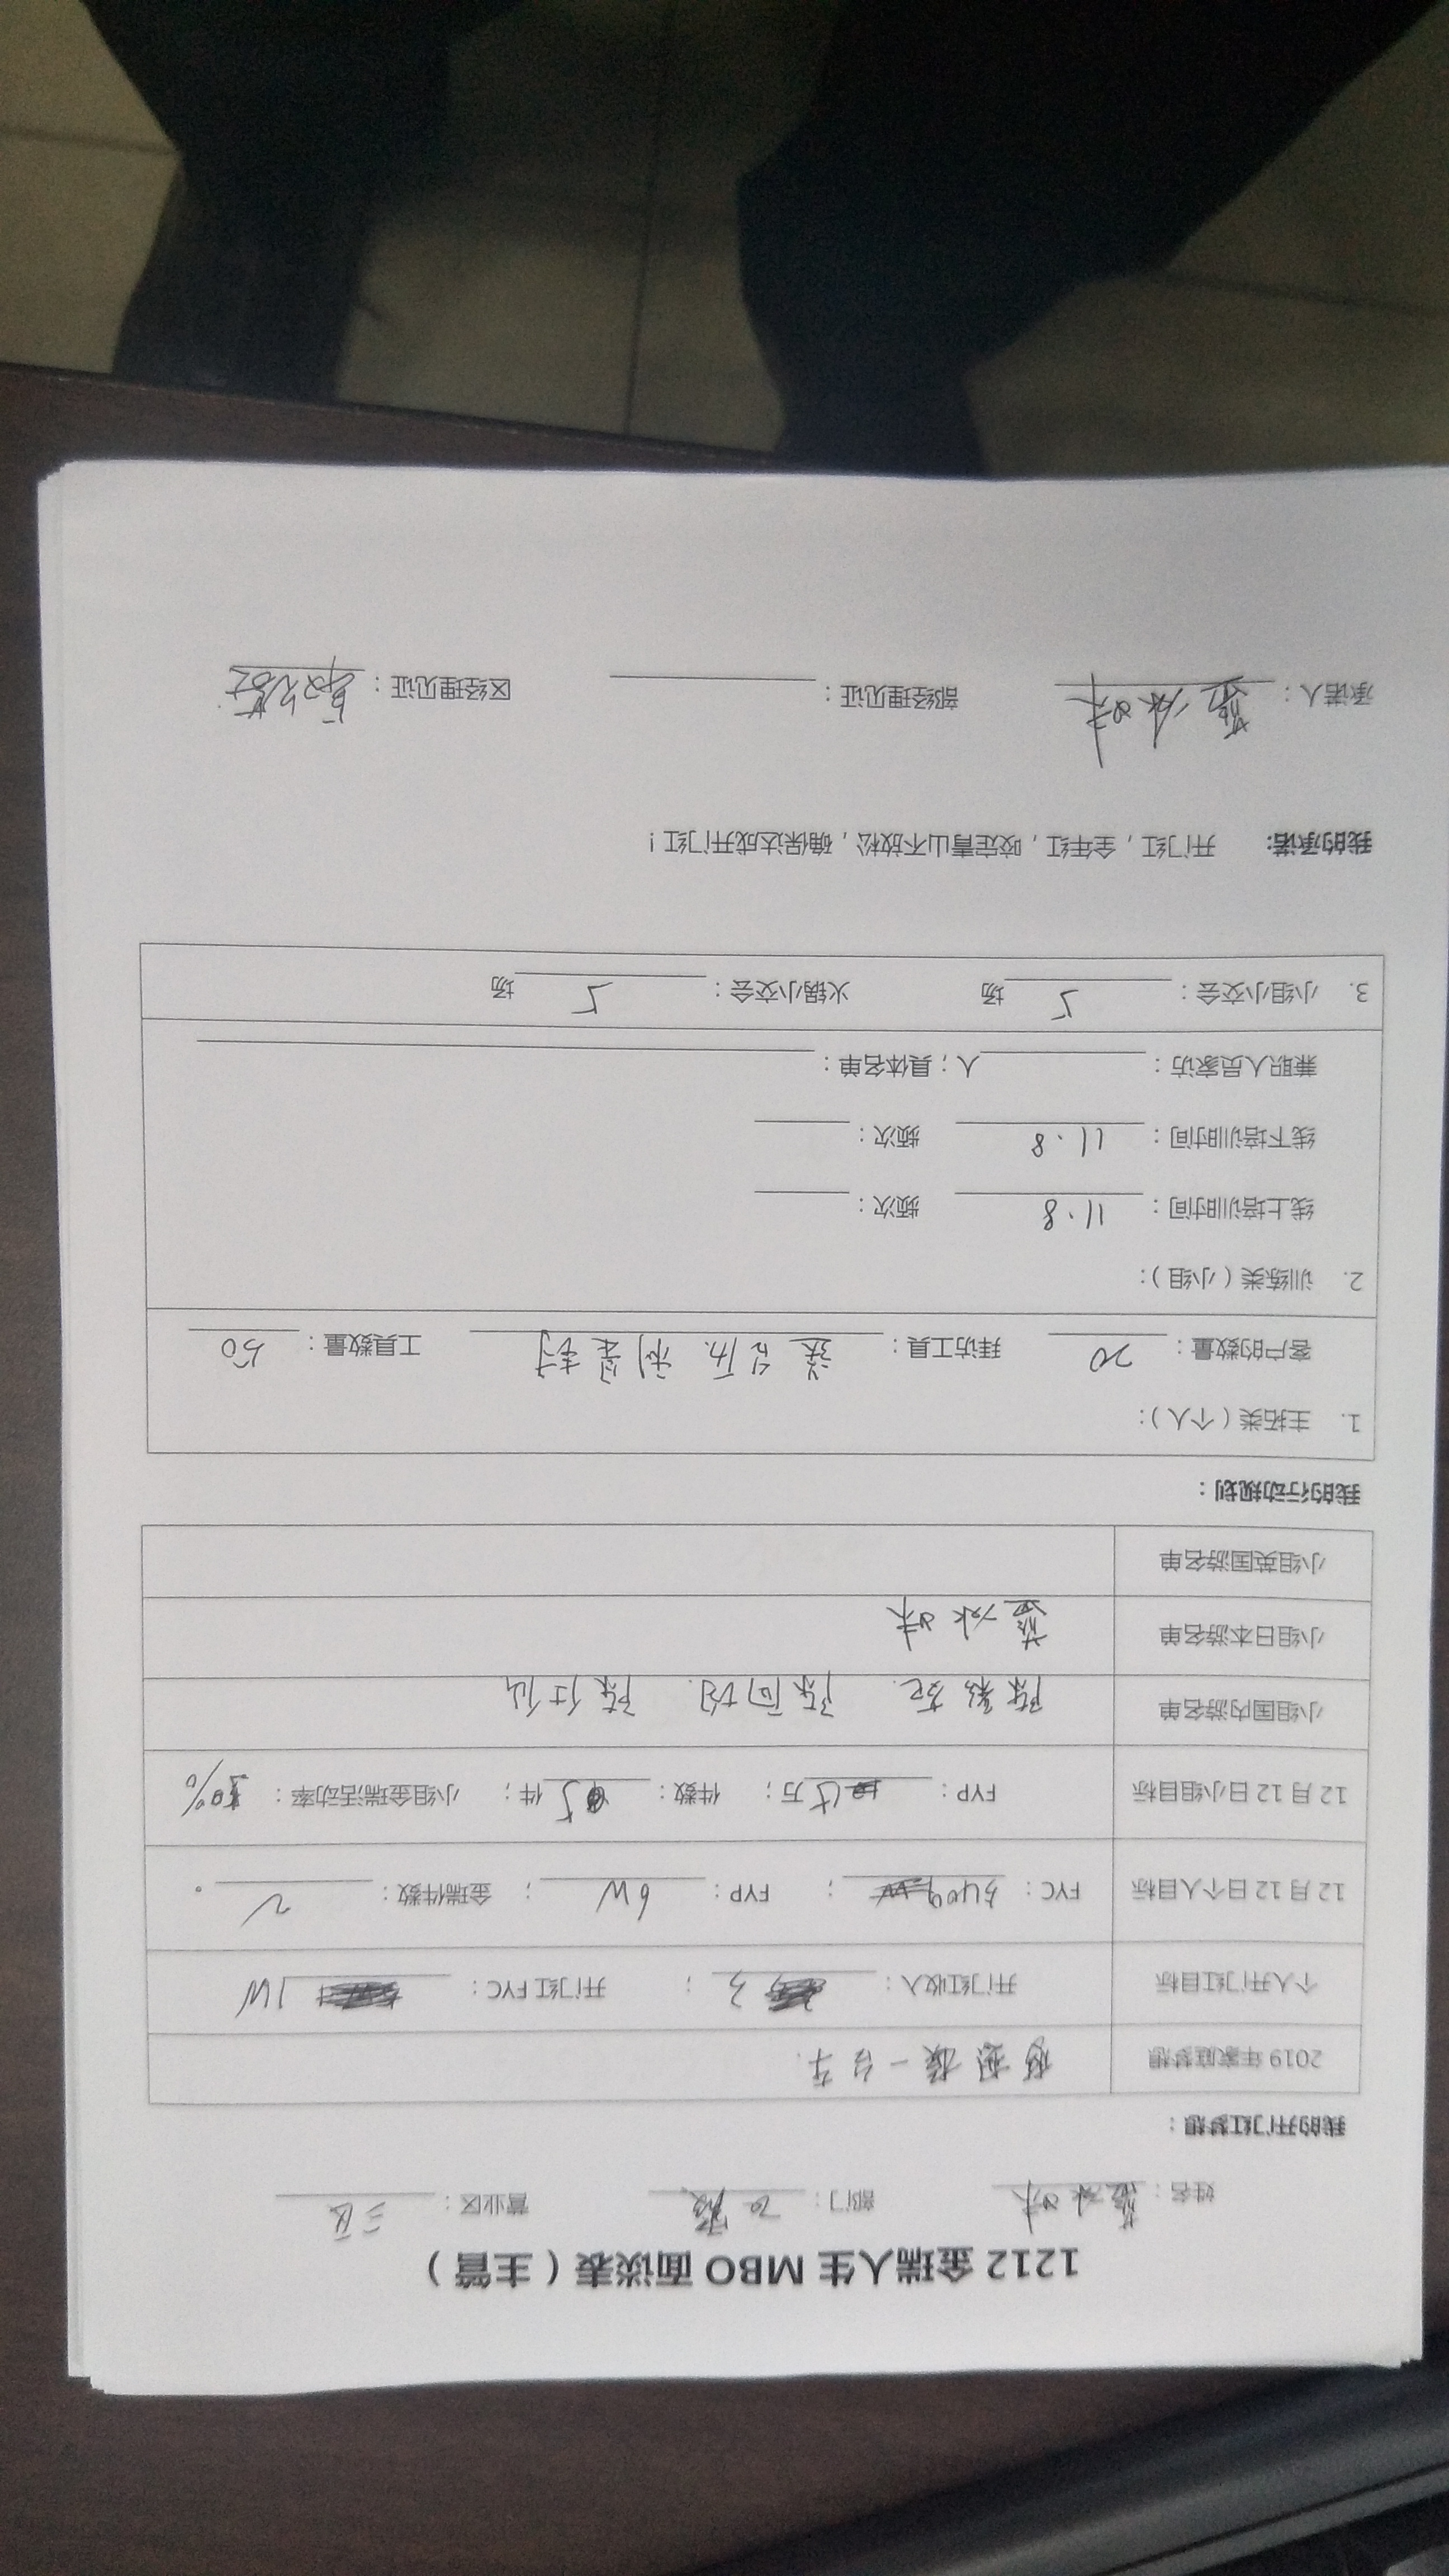 1212 金瑞人生 MBO 面谈表（主管）
姓名： 部门： 营业区：三区
我的开门红梦想：
2019 年家庭梦想 梦想换一台车.
个人开门红目标 开门红收入：3 ； 开门红 FYC： 1W
12 月 12 日个人目标 FYC：5409 ； FYP：6W ； 金瑞件数：2 。
12 月 12 日小组目标 FYP： 万； 件数：5 件； 小组金瑞活动率： %
小组国内游名单 陈彩 陈 陈仕仙
小组日本游名单 蓝冰味
小组英国游名单
我的行动规划：
1. 主拓类（个人）：
客户的数量：20 拜访工具：送台历. 利是封 工具数量：50
2. 训练类（小组）：
线上培训时间：11.8 频次：
线下培训时间：11.8 频次：
兼职人员家访： 人；具体名单：
3. 小组小交会：5 场 火锅小交会：5 场
我的承诺: 开门红，全年红，咬定青山不放松，确保达成开门红！
承诺人： 部经理见证： 区经理见证：